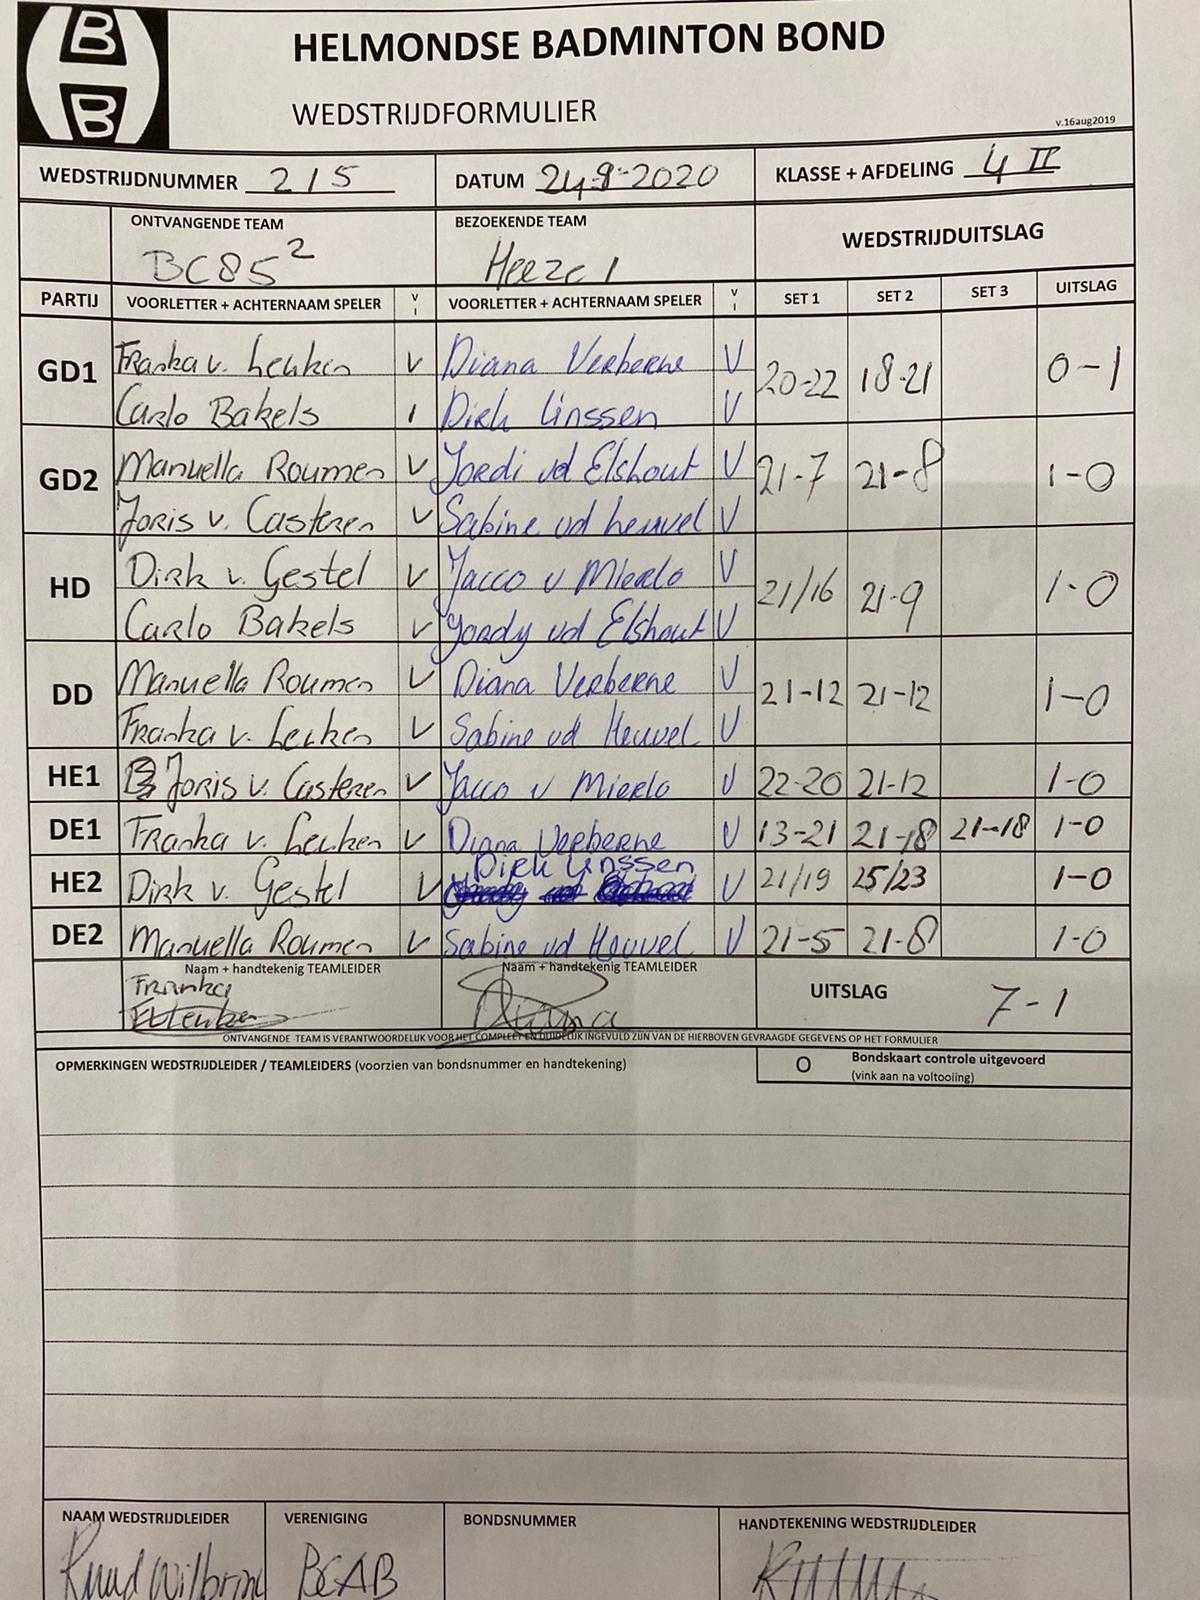 B
B
HELMONDSE BADMINTON BOND
WEDSTRIJDFORMULIER
v.16aug2019
WEDSTRIJDNUMMER 215 DATUM 24-9-2020 KLASSE + AFDELING 4 II
ONTVANGENDE TEAM BEZOEKENDE TEAM WEDSTRIJDUITSLAG
BC85² Heeze 1
PARTIJ VOORLETTER + ACHTERNAAM SPELER V I VOORLETTER + ACHTERNAAM SPELER V I SET 1 SET 2 SET 3 UITSLAG
GD1 Franka v. Leuken V Diana Verberne V 20-22 18-21 0-1
Carlo Bakels I Dirk Linssen V
GD2 Manuella Roumen V Jordi vd Elshout V 21-7 21-8 1-0
Joris v. Casteren V Sabine vd heuvel V
HD Dirk v. Gestel V Jacco v Mierlo V 21/16 21-9 1-0
Carlo Bakels V Jordy vd Elshout V
DD Manuella Roumen V Diana Verberne V 21-12 21-12 1-0
Franka v. Leuken V Sabine vd Heuvel V
HE1 Joris v. Casteren V Jacco v Mierlo V 22-20 21-12 1-0
DE1 Franka v. Leuken V Diana Verberne V 13-21 21-18 21-18 1-0
HE2 Dirk v. Gestel V Dirk Linssen V 21/19 25/23 1-0
DE2 Manuella Roumen V Sabine vd Heuvel V 21-5 21-8 1-0
Naam + handtekenig TEAMLEIDER Naam + handtekenig TEAMLEIDER UITSLAG 7-1
Franka
Diana
ONTVANGENDE TEAM IS VERANTWOORDELIJK VOOR HET COMPLEET EN DUIDELIJK INGEVULD ZIJN VAN DE HIERBOVEN GEVRAAGDE GEGEVENS OP HET FORMULIER
OPMERKINGEN WEDSTRIJDLEIDER / TEAMLEIDERS (voorzien van bondsnummer en handtekening) O Bondskaart controle uitgevoerd
(vink aan na voltooiing)
NAAM WEDSTRIJDLEIDER VERENIGING BONDSNUMMER HANDTEKENING WEDSTRIJDLEIDER
Ruud BCAB